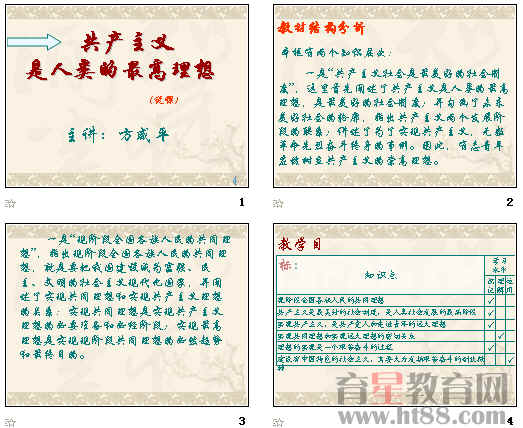 共产主义
是人类的最高理想
(说课)
主讲：方成平
4
1
教材结构分析
本框有两个知识层次：
一是“共产主义社会是最美好的社会制
度”，这里首先阐述了共产主义是人类的最高
理想，是最美好的社会制度；并勾画了未来
美好社会的轮廓，指出共产主义两个发展阶
段的联系；讲述了为了实现共产主义，无数
革命先烈奋斗终身的事例。因此，有志青年
应该树立共产主义的崇高理想。
2
一是“现阶段全国各族人民的共同理
想”，指出现阶段全国各族人民的共同理
想，就是要把我国建设成为富强、民
主、文明的社会主义现代化国家，并阐
述了实现共同理想和实现共产主义理想
的关系：实现共同理想是实现共产主义
理想的必要准备和必经阶段；实现最高
理想是实现现阶段共同理想的必然趋势
和最终目的。
3
教学目
标：
知识点
学习
水平
识记
理解
运用
现阶段全国各族人民的共同理想
共产主义是最美好的社会制度，是人类社会发展的最高阶段
实现共产主义，是共产党人和先进青年的远大理想
实现共同理想和实现远大理想的密切关系
理想的实现是一个艰苦奋斗的过程
建设有中国特色的社会主义，需要大力发扬艰苦奋斗的创业精
神
育星教育网
www.ht88.com
4